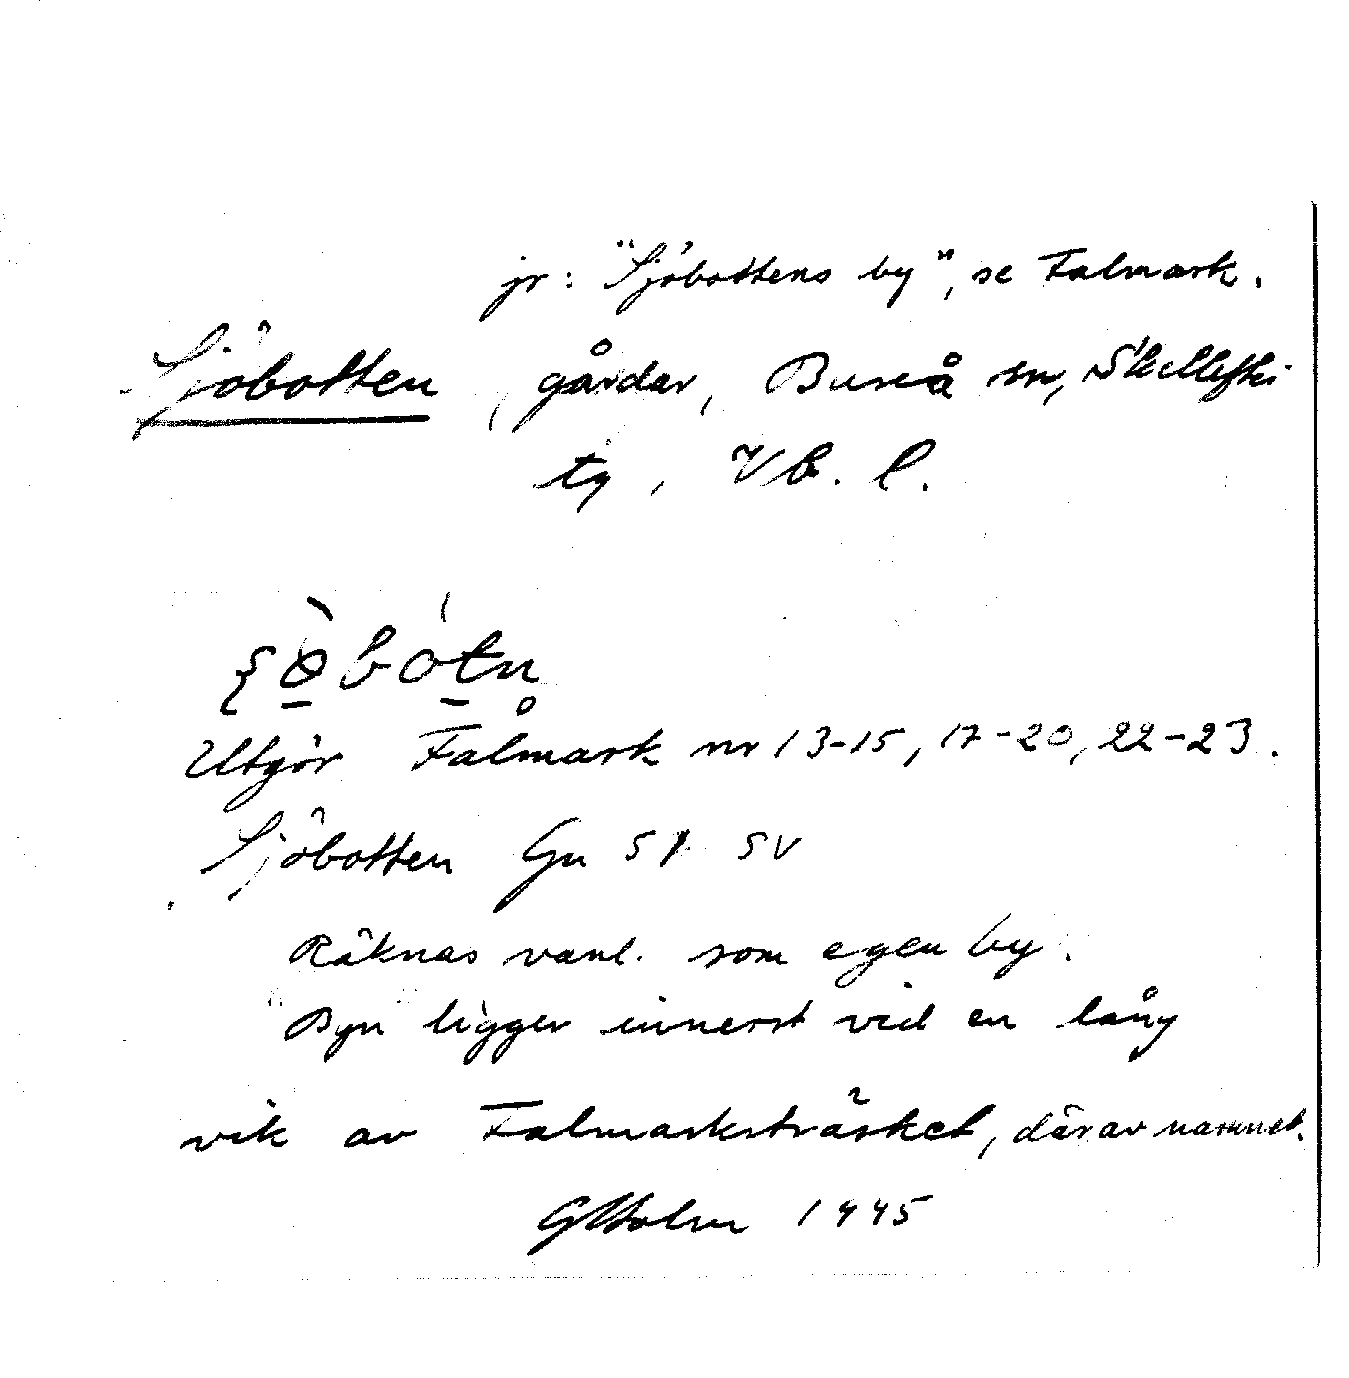 jr: "Sjöbottens by", se Falmark.
Sjöbotten, gårdar, Bureå sn, Skellefteå
tg, Vb. l.
ʂø̀bótn̥
Utgör Falmark nr 13-15, 17-20, 22-23.
Sjöbotten Gn 51 SV
Räknas vanl. som egen by.
"Byn" ligger innerst vid en lång
vik av Falmarksträsket, därav namnet.
GHolm 1945